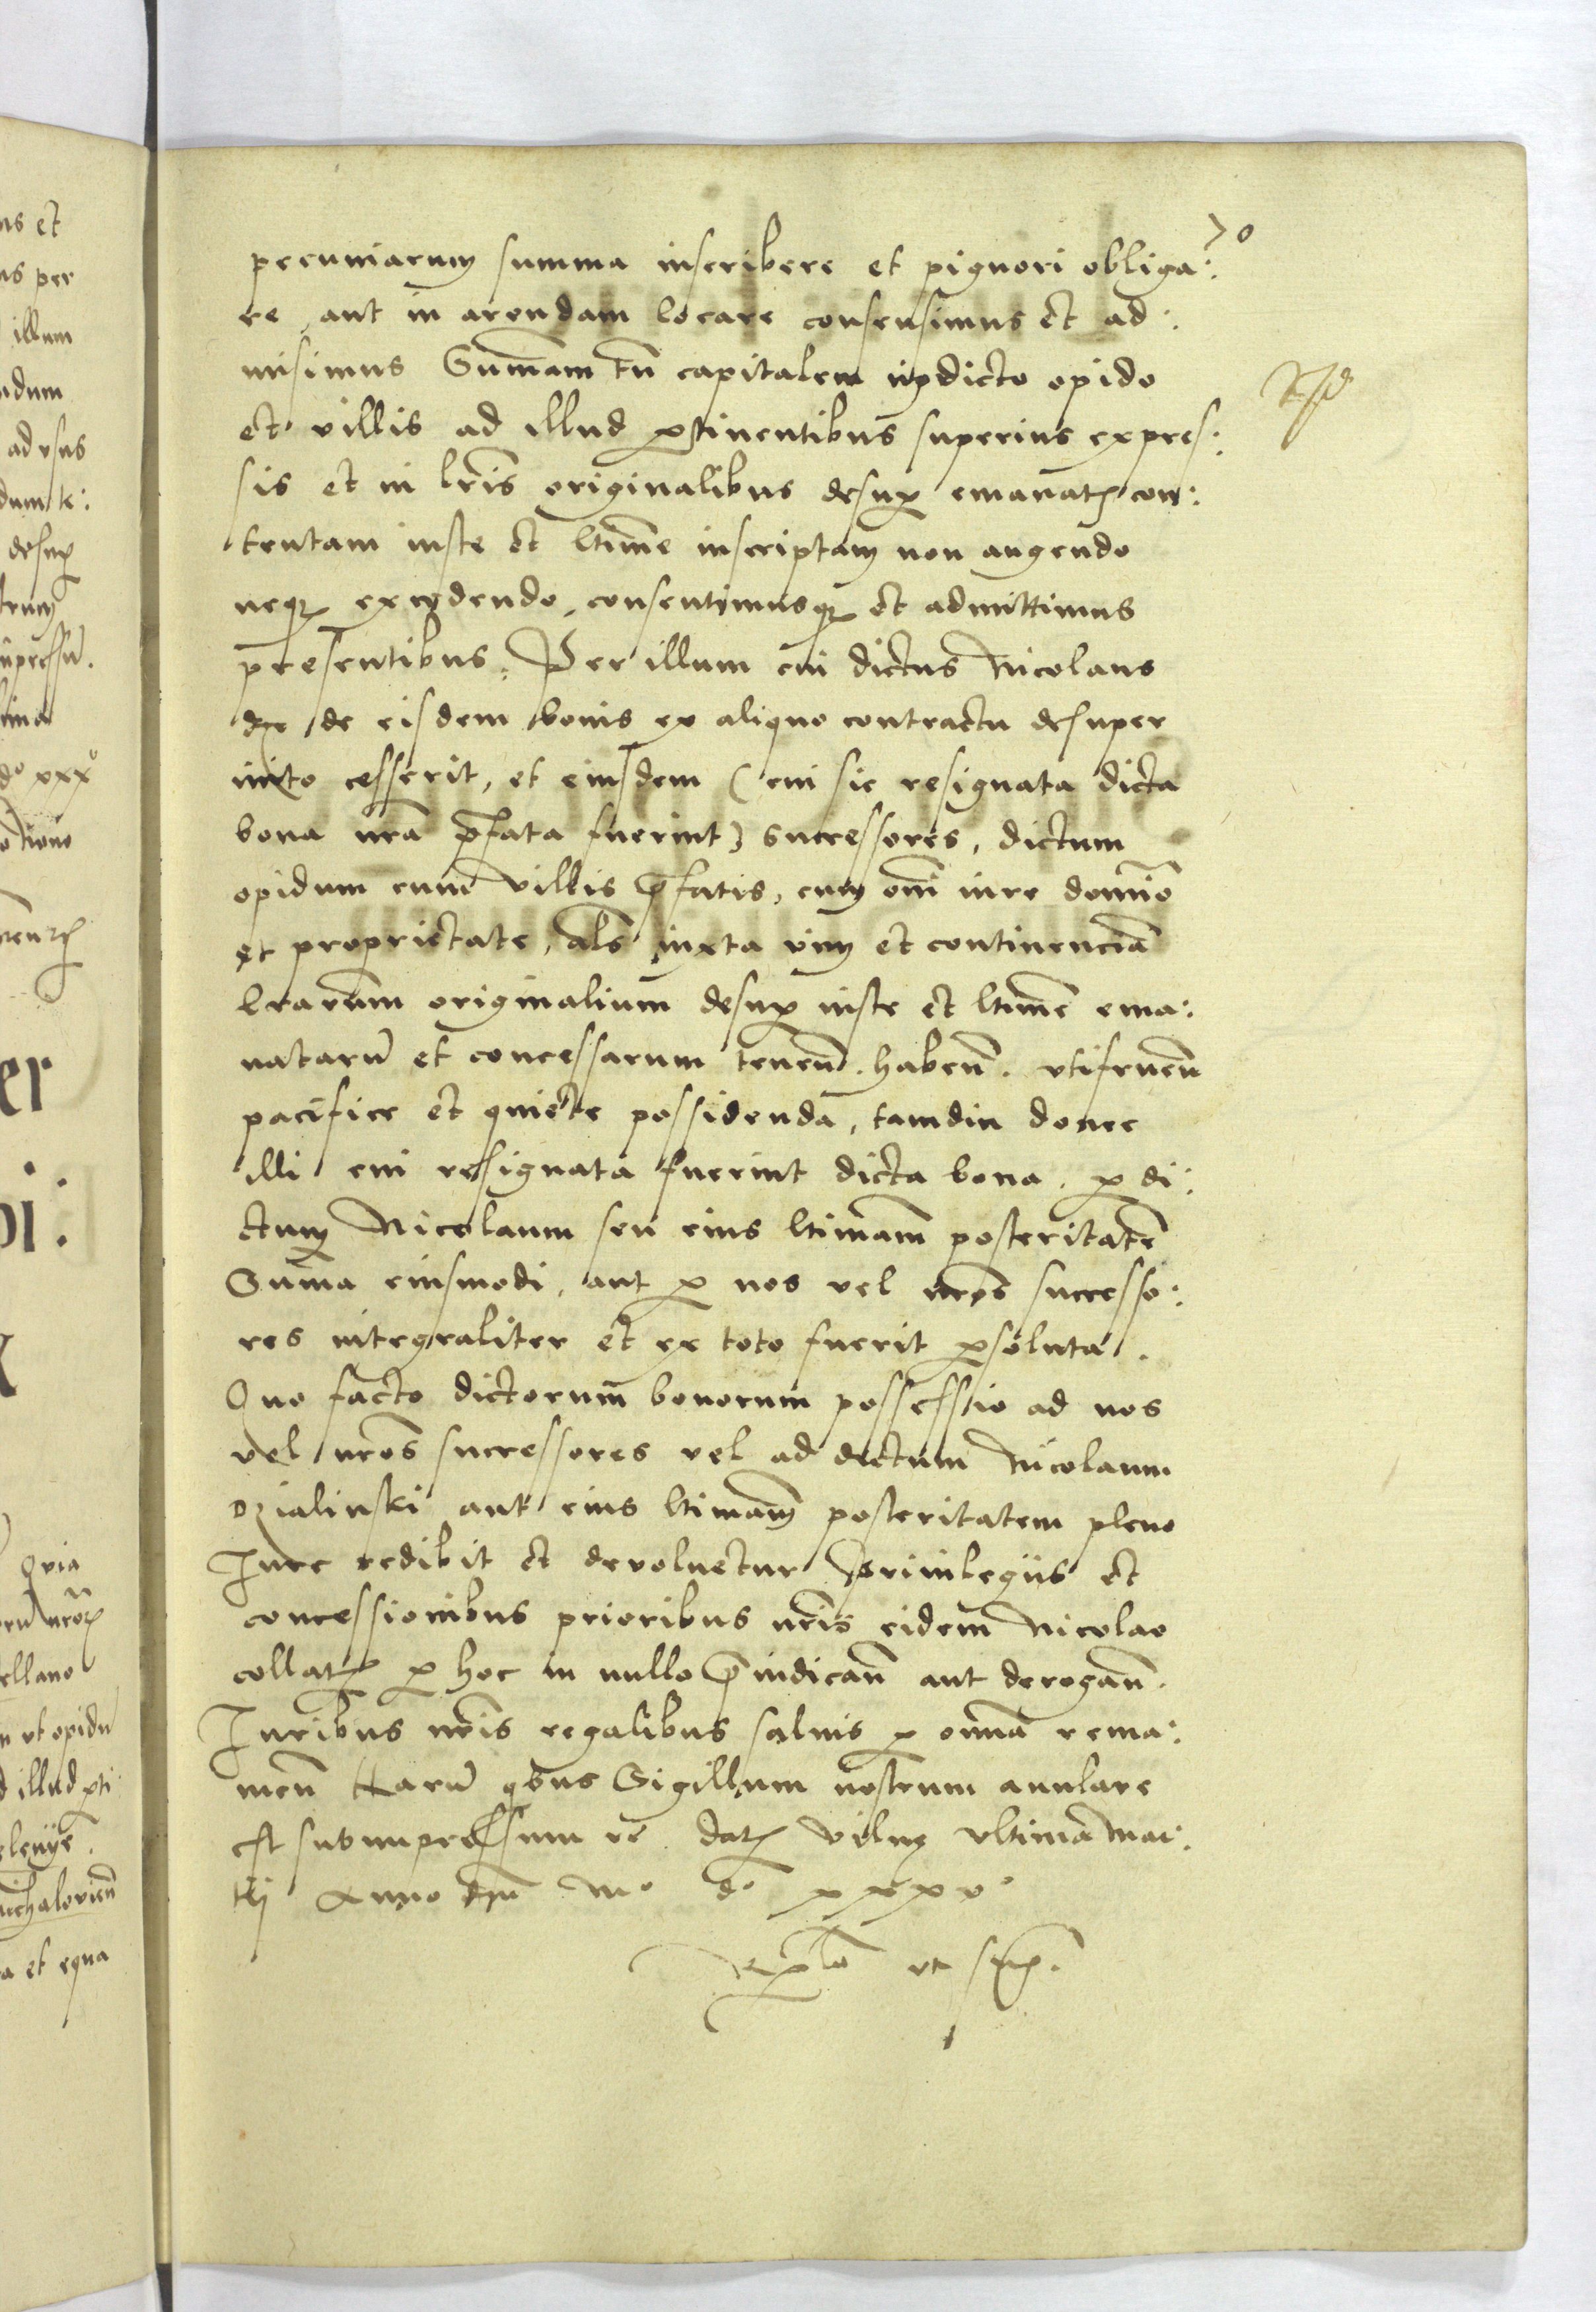 70
pecuniarum summa inscribere et pignori obliga:
re aut in arendam locare consensimus et ad:
misimus Sum̄am tn̄ capitalem in p̄dicto opido
et villis ad illud ꝑtinentibus superius expres:
sis et in lr̄is originalibus desuꝑ emanatꝭ con:
tentam iuste et ltim̄e inscriptam non augendo
neqꝫ excedendo, consentimusqꝫ et admittimus
presentibus, Per illum cui dictus Nicolaus
de eisdem bonis ex aliquo contractu desuper
inito cesserit, et eiusdem (cui sic resignata dicta
bona nr̄a p̄fata fuerint) successores, dictum
opidum cum villis p̄fatis, cum om̄i iure dominio
et proprietate, als̄ iuxta vim et continenciā
lr̄arum originalium desuꝑ iuste et ltim̄e ema:
natarū et concessarum tenen̄. haben̄. vtifruen̄
pacifice et quiete possidenda, tamdiu donec
illi cui resignata fuerint dicta bona, ꝑ di:
ctum Nicolaum seu eius ltimam̄ posteritatē
Sum̄a eiusmodi, aut ꝑ nos vel nr̄os successo:
res integraliter et ex toto fuerit ꝑsoluta.
Quo facto dictorum bonorum possessio ad nos
vel nr̄os successores vel ad dictum Nicolaum
Dzialinski aut eius ltimam̄ posteritatem pleno
Iure redibit et devoluetur Priuilegiis et
concessionibus prioribus nr̄is eidem Nicolao
collatꝭ ꝑ hoc in nullo p̄iudican̄ aut derogan̄.
Iuribus nr̄is regalibus saluis ꝑ omnia rema:
nen̄ Harū qbus Sigillum nostrum annulare
est subimpressum rē Datꝭ Vilnę vltima Mar:
tij Anno dn̄i Mº dº xxxvº
Relō vt supꝭ.